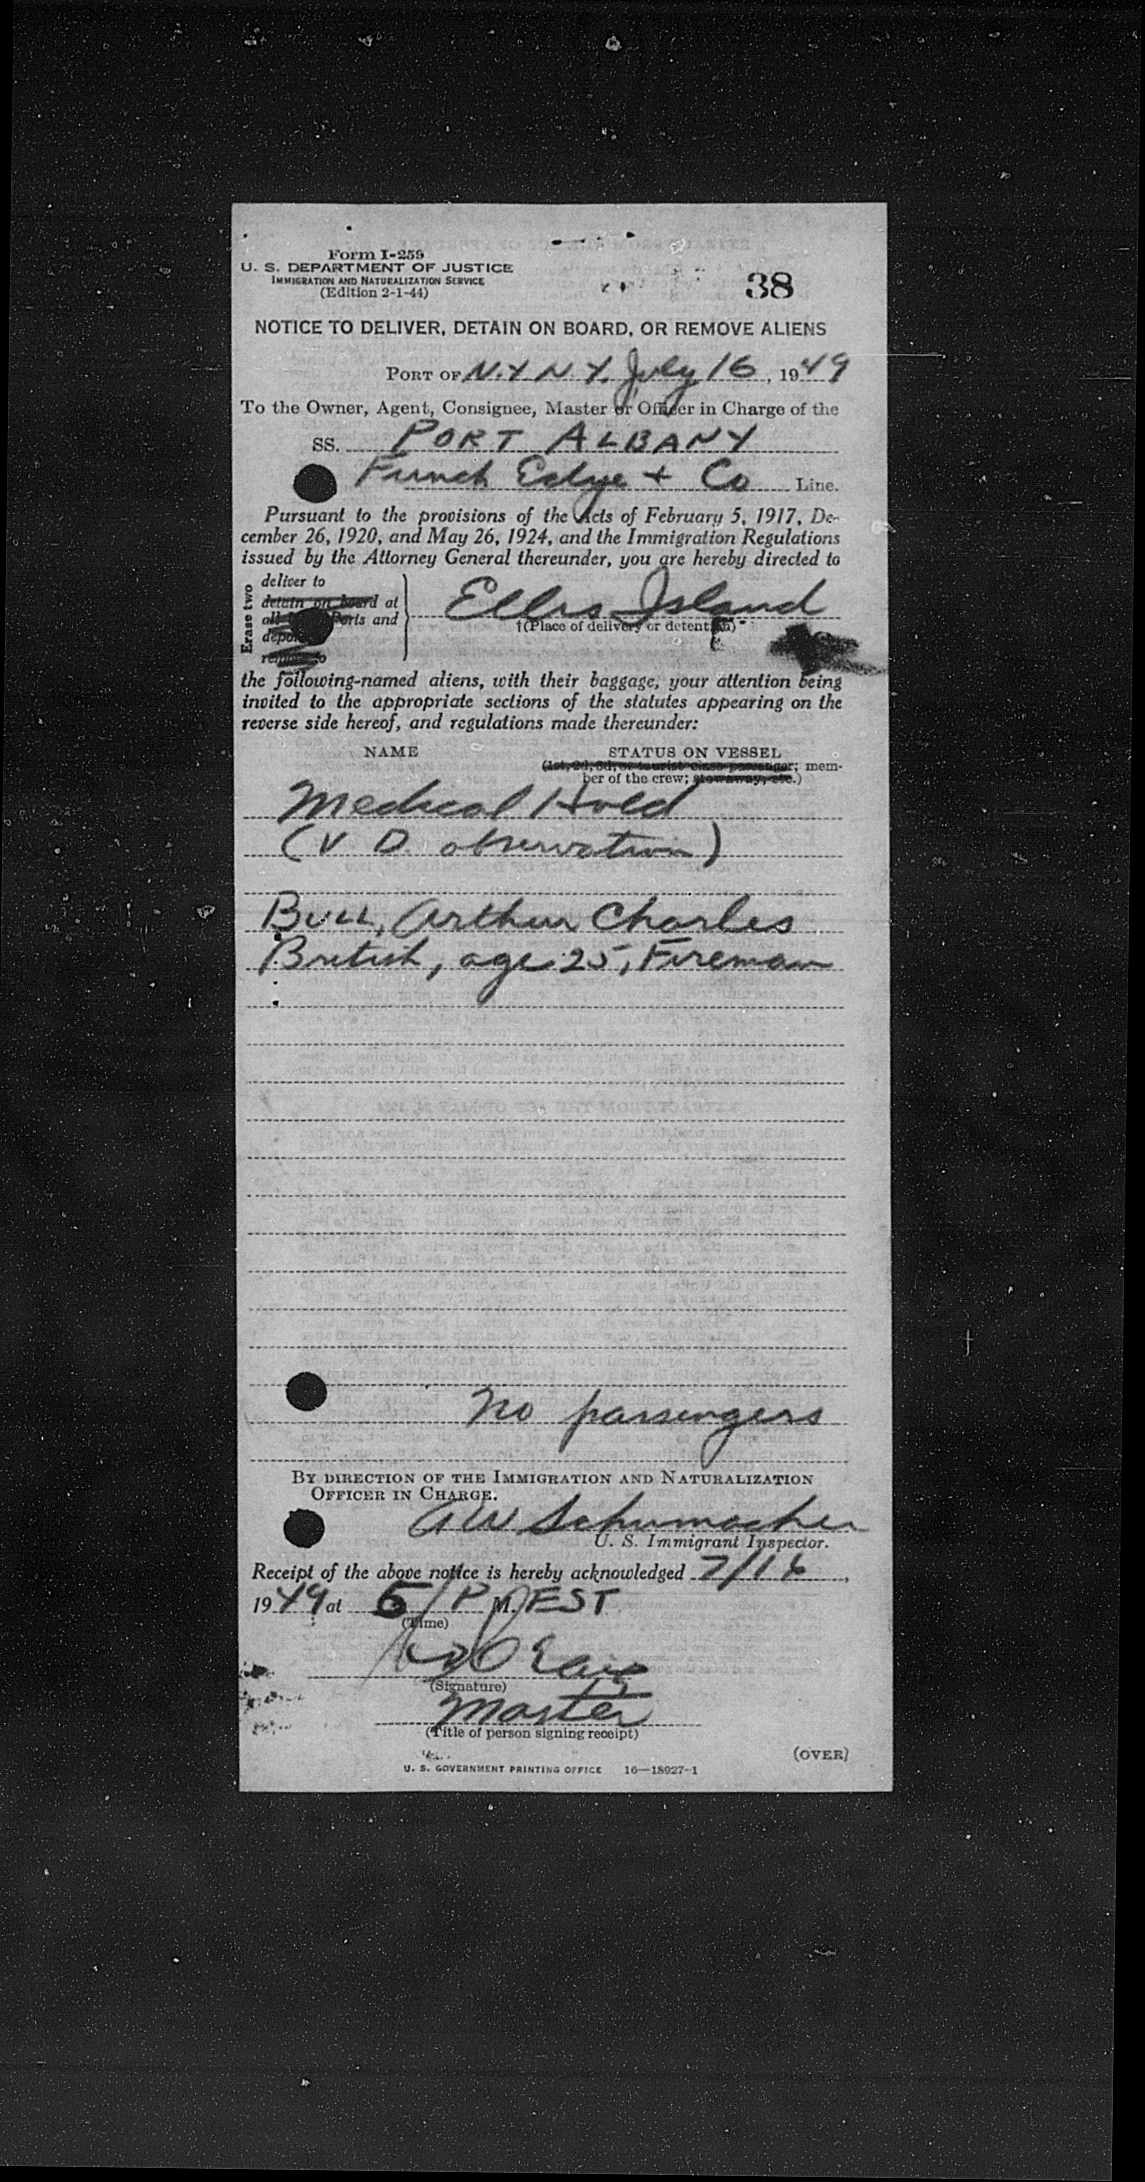 Form I-259
U. S. DEPARTMENT OF JUSTICE
IMMIGRATION AND NATURALIZATION SERVICE
(Edition 2-1-44)
38
NOTICE TO DELIVER, DETAIN ON BOARD, OR REMOVE ALIENS
PORT OF N.Y N.Y. July 16, 1949
To the Owner, Agent, Consignee, Master or Officer in Charge of the
SS. PORT ALBANY
Funch Edye + Co Line.
Pursuant to the provisions of the Acts of February 5, 1917, De-
cember 26, 1920, and May 26, 1924, and the Immigration Regulations
issued by the Attorney General thereunder, you are hereby directed to
Erase two
deliver to
detain on board at
all Ports and
Ellis Island
†(Place of delivery or detention)
the following-named aliens, with their baggage, your attention being
invited to the appropriate sections of the statutes appearing on the
reverse side hereof, and regulations made thereunder:
NAME STATUS ON VESSEL
(1st, 2d, 3d, or tourist class passenger; mem-
ber of the crew; stowaway, etc.)
Medical Hold
(V D observation)
BULL, Arthur Charles
British, age 25, Fireman
No passengers
BY DIRECTION OF THE IMMIGRATION AND NATURALIZATION
OFFICER IN CHARGE.
A W Schumacher
U. S. Immigrant Inspector.
Receipt of the above notice is hereby acknowledged 7/16,
1949 at 5/P M. EST
(Time)
(Signature)
Master
(Title of person signing receipt)
(OVER)
U. S. GOVERNMENT PRINTING OFFICE 16—18927-1